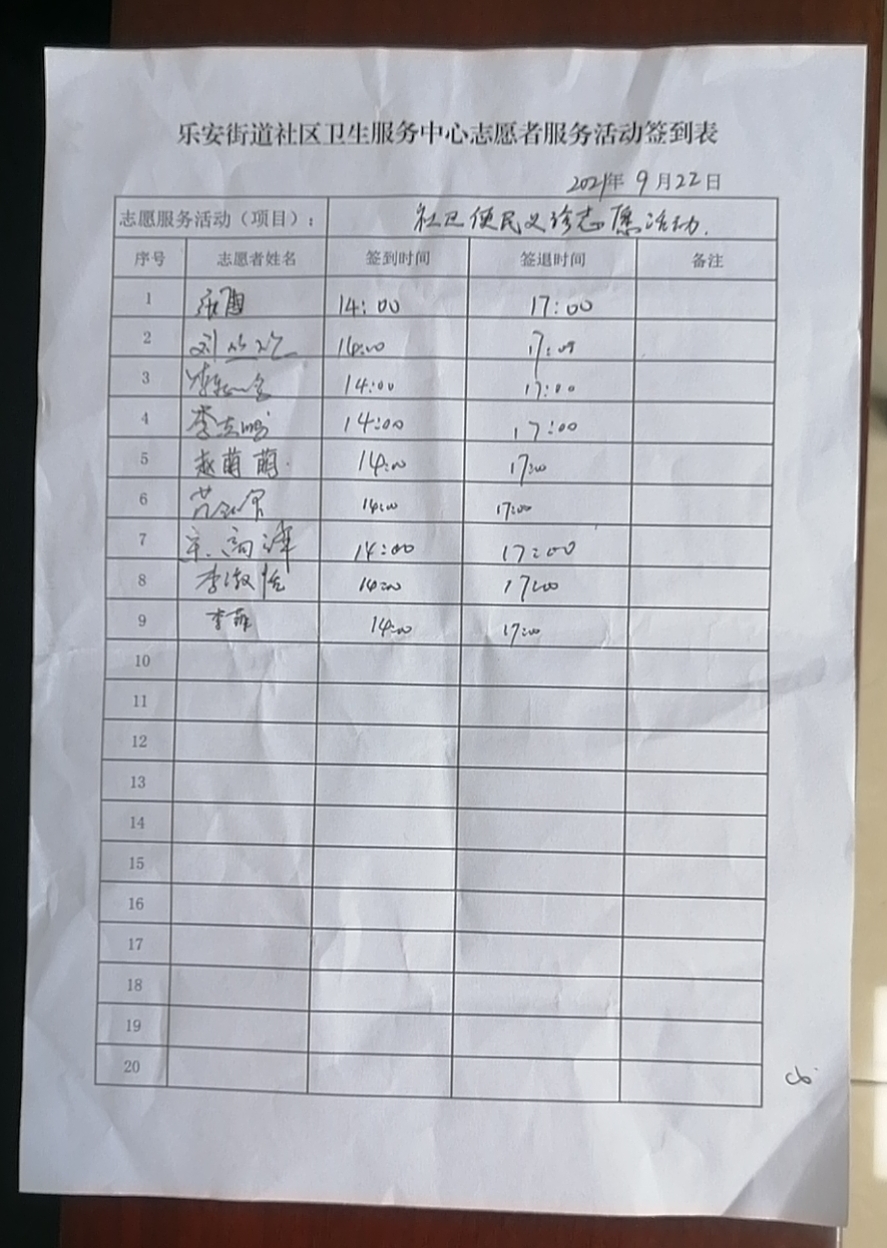 乐安街道社区卫生服务中心志愿者服务活动签到表
2021年 9月22日
志愿服务活动（项目）： 社卫便民义诊志愿活动.
序号 志愿者姓名 签到时间 签退时间 备注
1 14:00 17:00
2 刘 14:00 17:00
3 14:00 17:00
4 李志鹏 14:00 17:00
5 赵萌萌 14:00 17:00
6 14:00 17:00
7 14:00 17:00
8 李淑 14:00 17:00
9 李菲 14:00 17:00
10
11
12
13
14
15
16
17
18
19
20